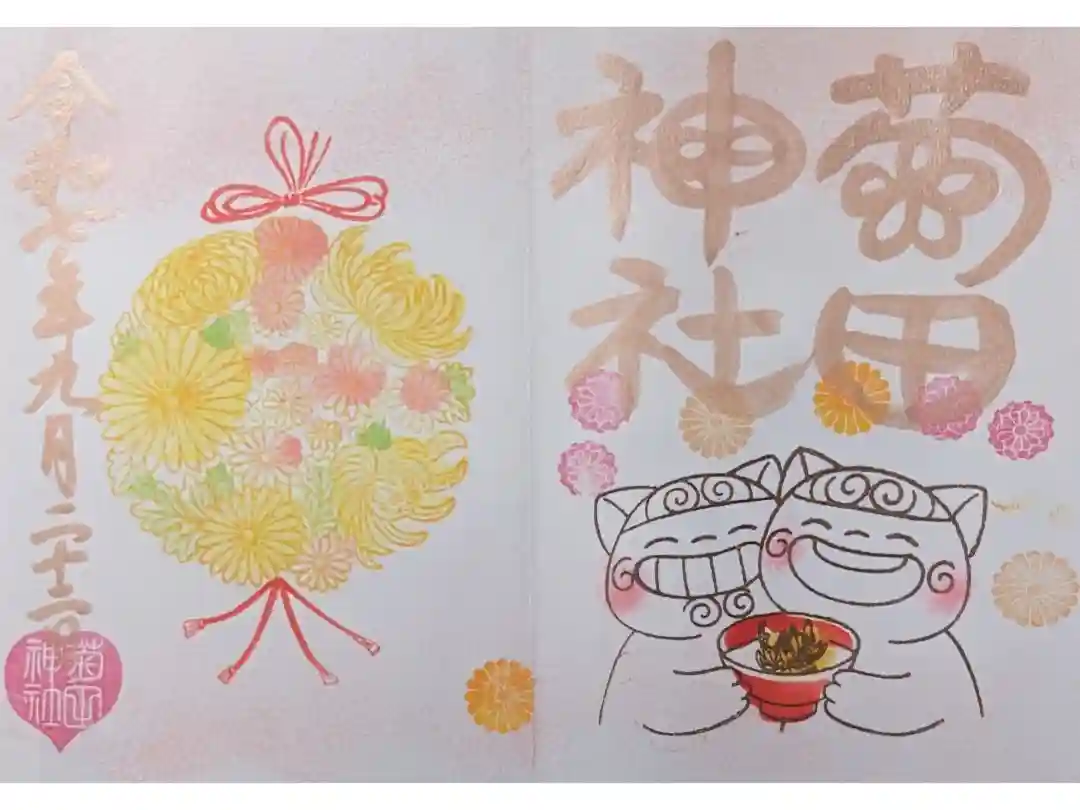 菊田
神社
令和七年九月二十三日
菊田
神社